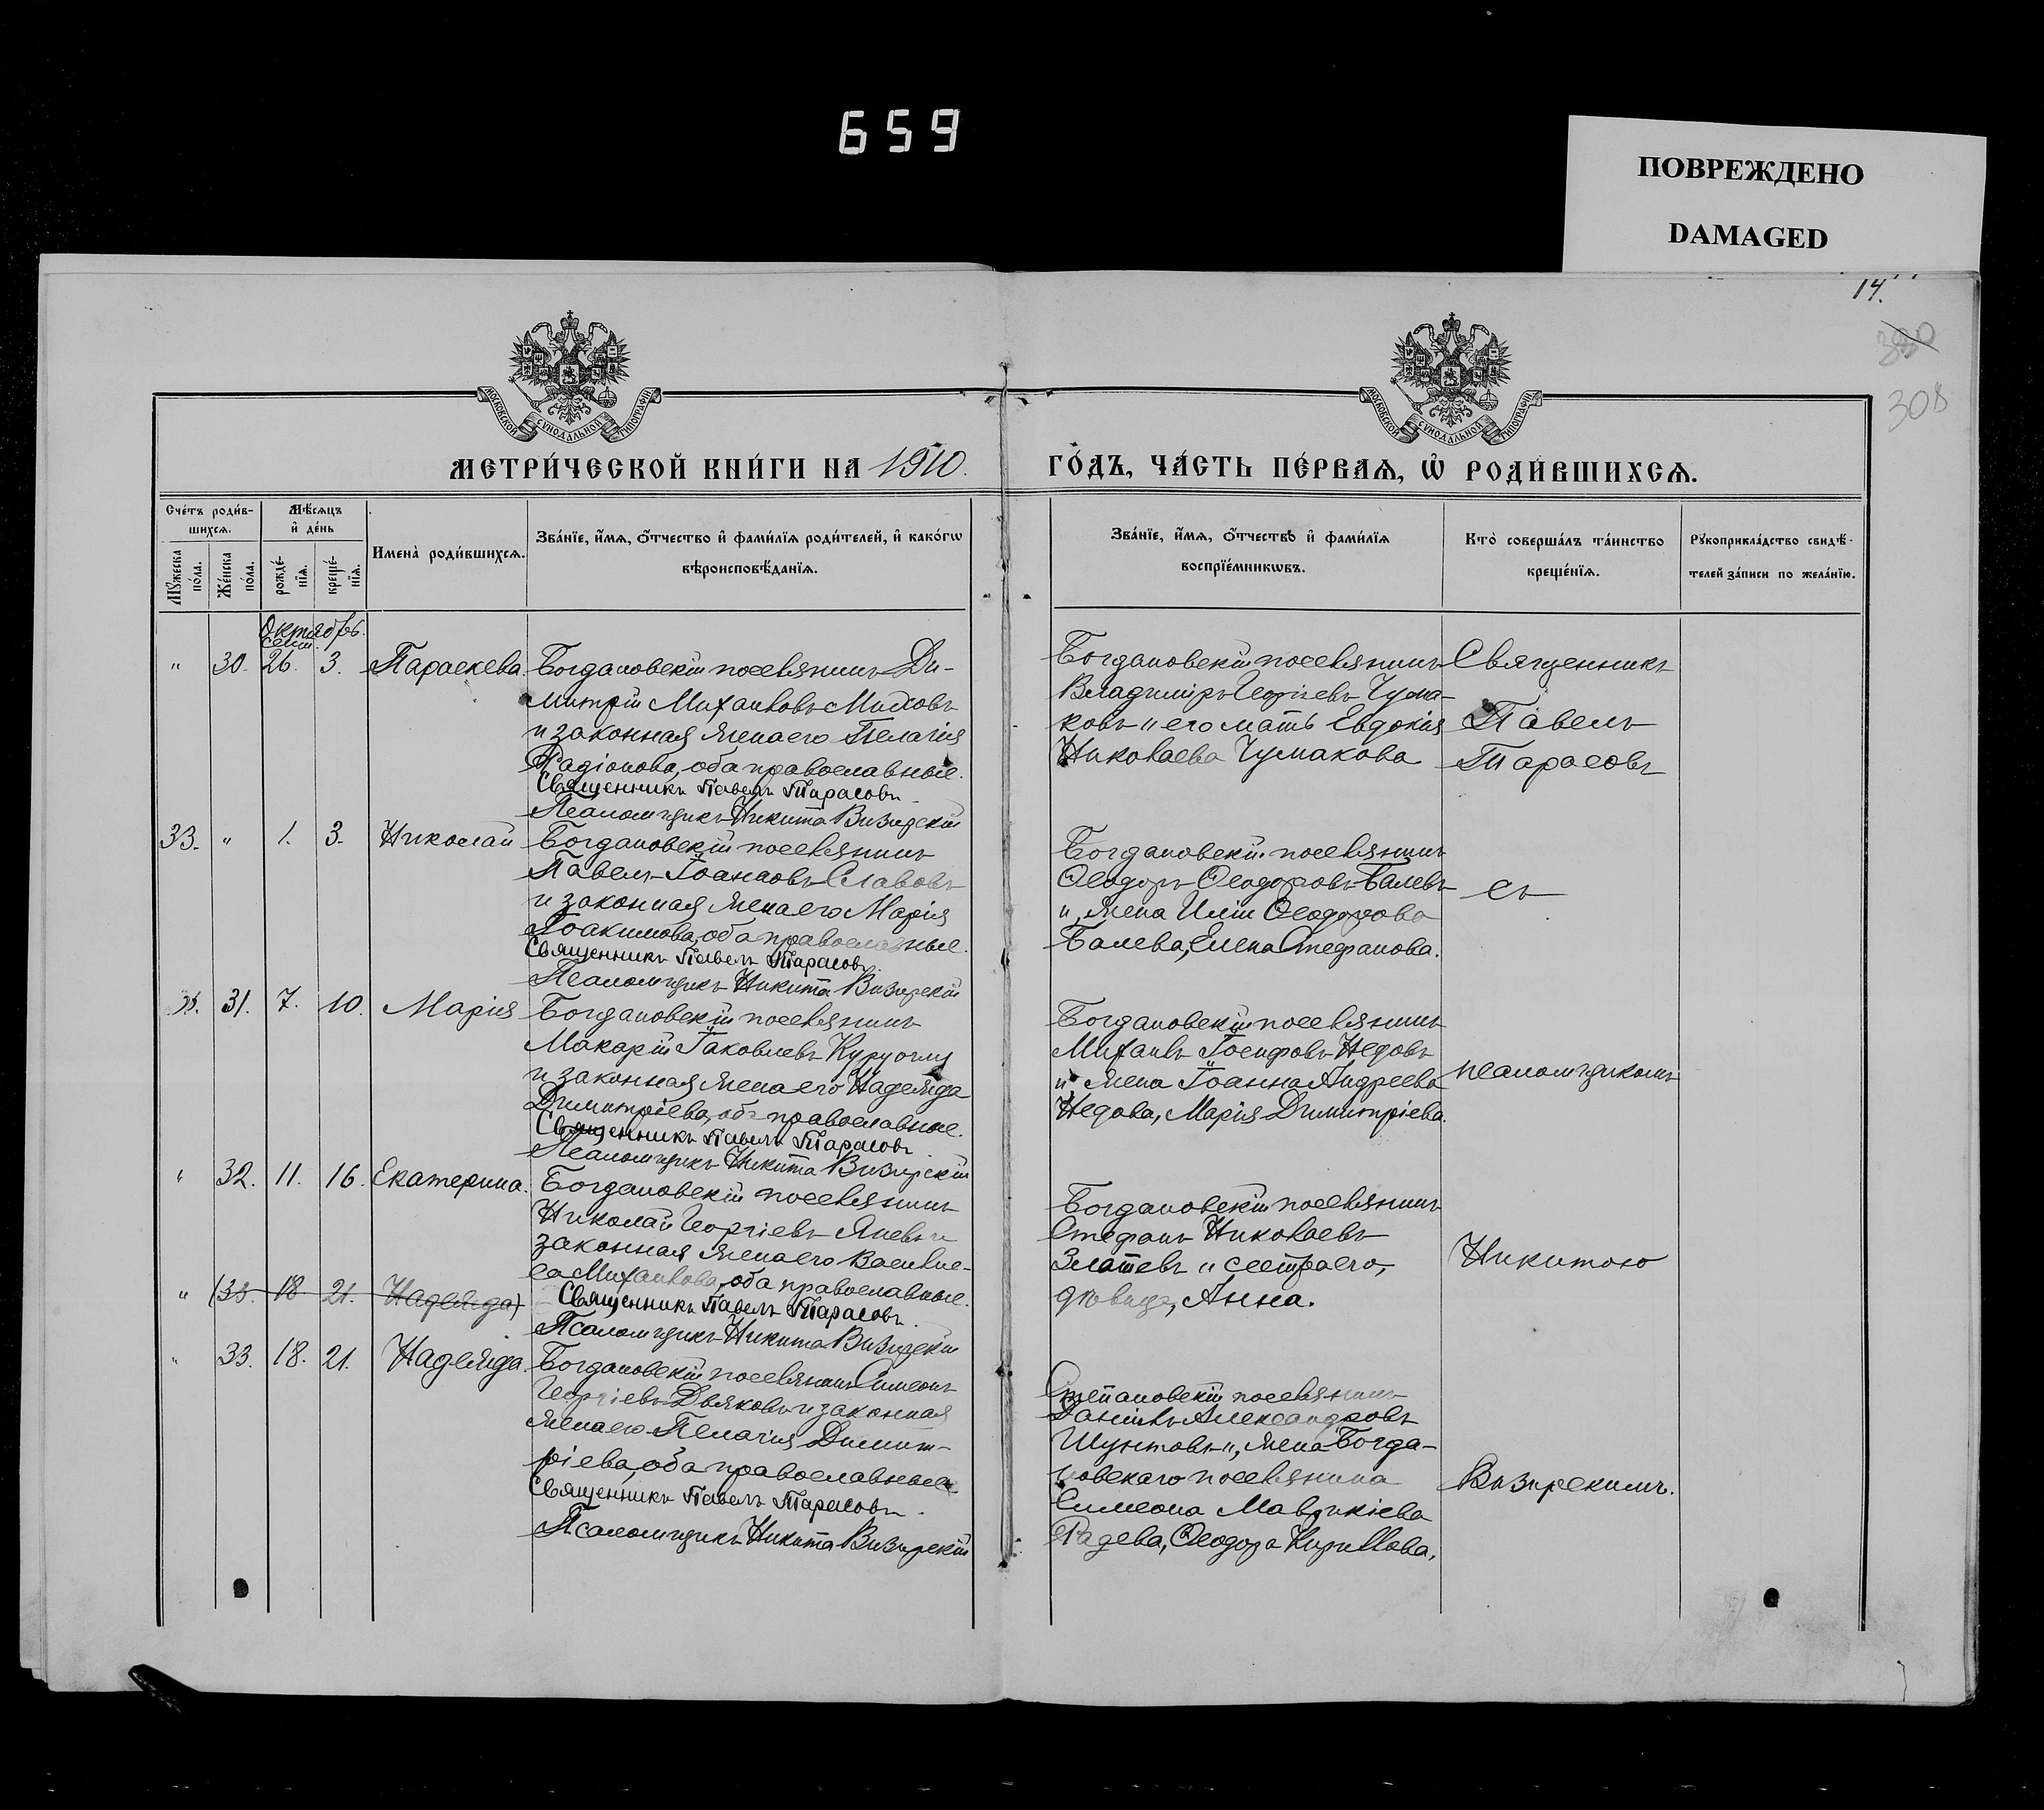 659
ПОВРЕЖДЕНО
DAMAGED
14.
330
308
МОСКОВСКОЙ СУНОДАЛЬНОЙ ТИПОГРАФІИ
МОСКОВСКОЙ СУНОДАЛЬНОЙ ТИПОГРАФІИ
МЕТРИ́ЧЕСКОЙ КНИ́ГИ НА 1910.
ГО́ДЪ, ЧА́СТЬ ПЕ́РВАѦ, Ѡ҆ РОДИ́ВШИХСѦ.
Сче́тъ роди́в-
шихсѧ.
Мꙋ́жеска по́ла.
Же́нска по́ла.
Мѣ́сѧцъ
и҆ де́нь
рожде́-
нїѧ.
креще́-
нїѧ.
Имена̀ роди́вшихсѧ.
Зва́нїе, и҆́мѧ, ѻ҆́тчество и҆ фами́лїѧ роди́телей, и҆ како́гѡ
вѣроисповѣ́данїѧ.
Зва́нїе, и҆́мѧ, ѻ҆́тчество и҆ фами́лїѧ
воспрїе́мникѡвъ.
Кто̀ соверша́лъ та́инство
креще́нїѧ.
Рꙋкоприкла́дство свидѣ́-
телей за́писи по жела́нїю.
Октябрь.
Сент.
" 30. 26. 3. Параскева.
Богдановскій поселянинъ Ди-
митрій Михаиловъ Митовъ
и законная жена его Пелагія
Радіонова, оба православные.
Священникъ Павелъ Тарасовъ.
Псаломщикъ Никита Визирскій
Богдановскій поселянинъ
Владиміръ Георгіевъ Чума-
ковъ и его мать Евдокія
Николаева Чумакова
Священникъ
Павелъ
Тарасовъ
33. " 1. 3. Николай
Богдановскій поселянинъ
Павелъ Іоанновъ Славовъ
и законная жена его Марія
Іоакимова, оба православные.
Священникъ Павелъ Тарасовъ.
Псаломщикъ Никита Визирскій
Богдановскій поселянинъ
Ѳеодоръ Ѳеодоровъ Балевъ
и, жена Иліи Ѳеодорова
Балева, Елена Стефанова.
съ
31. 7. 10. Марія
Богдановскій поселянинъ
Макарій Іаковлевъ Куруогли
и законная жена его Надежда
Димитріева, оба православные.
Священникъ Павелъ Тарасовъ.
Псаломщикъ Никита Визирскій
Богдановскій поселянинъ
Михаилъ Іосифовъ Недовъ
и жена Іоанна Андреева
Недова, Марія Димитріева.
псаломщикомъ
" 32. 11. 16. Екатерина.
Богдановскій поселянинъ
Николай Георгіевъ Яневъ и
законная жена его Василис-
са Михаилова, оба православные.
Священникъ Павелъ Тарасовъ.
Псаломщикъ Никита Визирскій
Богдановскій поселянинъ
Стефанъ Николаевъ
Златевъ и сестра его,
дѣвица, Анна.
Никитою
" (33. 18. 21. Надежда)
" 33. 18. 21. Надежда.
Богдановскій поселянинъ Симеонъ
Георгіевъ Дьяковъ и законная
жена его Пелагія Димит-
ріева, оба православные
Священникъ Павелъ Тарасовъ.
Псаломщикъ Никита Визирскій
Степановскій поселянинъ
Даніилъ Александровъ
Шунтовъ и, жена Богда-
новскаго поселянина
Симеона Маврикіева
Радева, Ѳеодора Кириллова.
Визирскимъ.